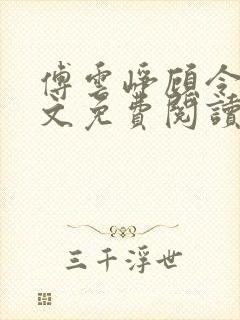 傅雲崢顧令
文免費閱讀
三千浮世